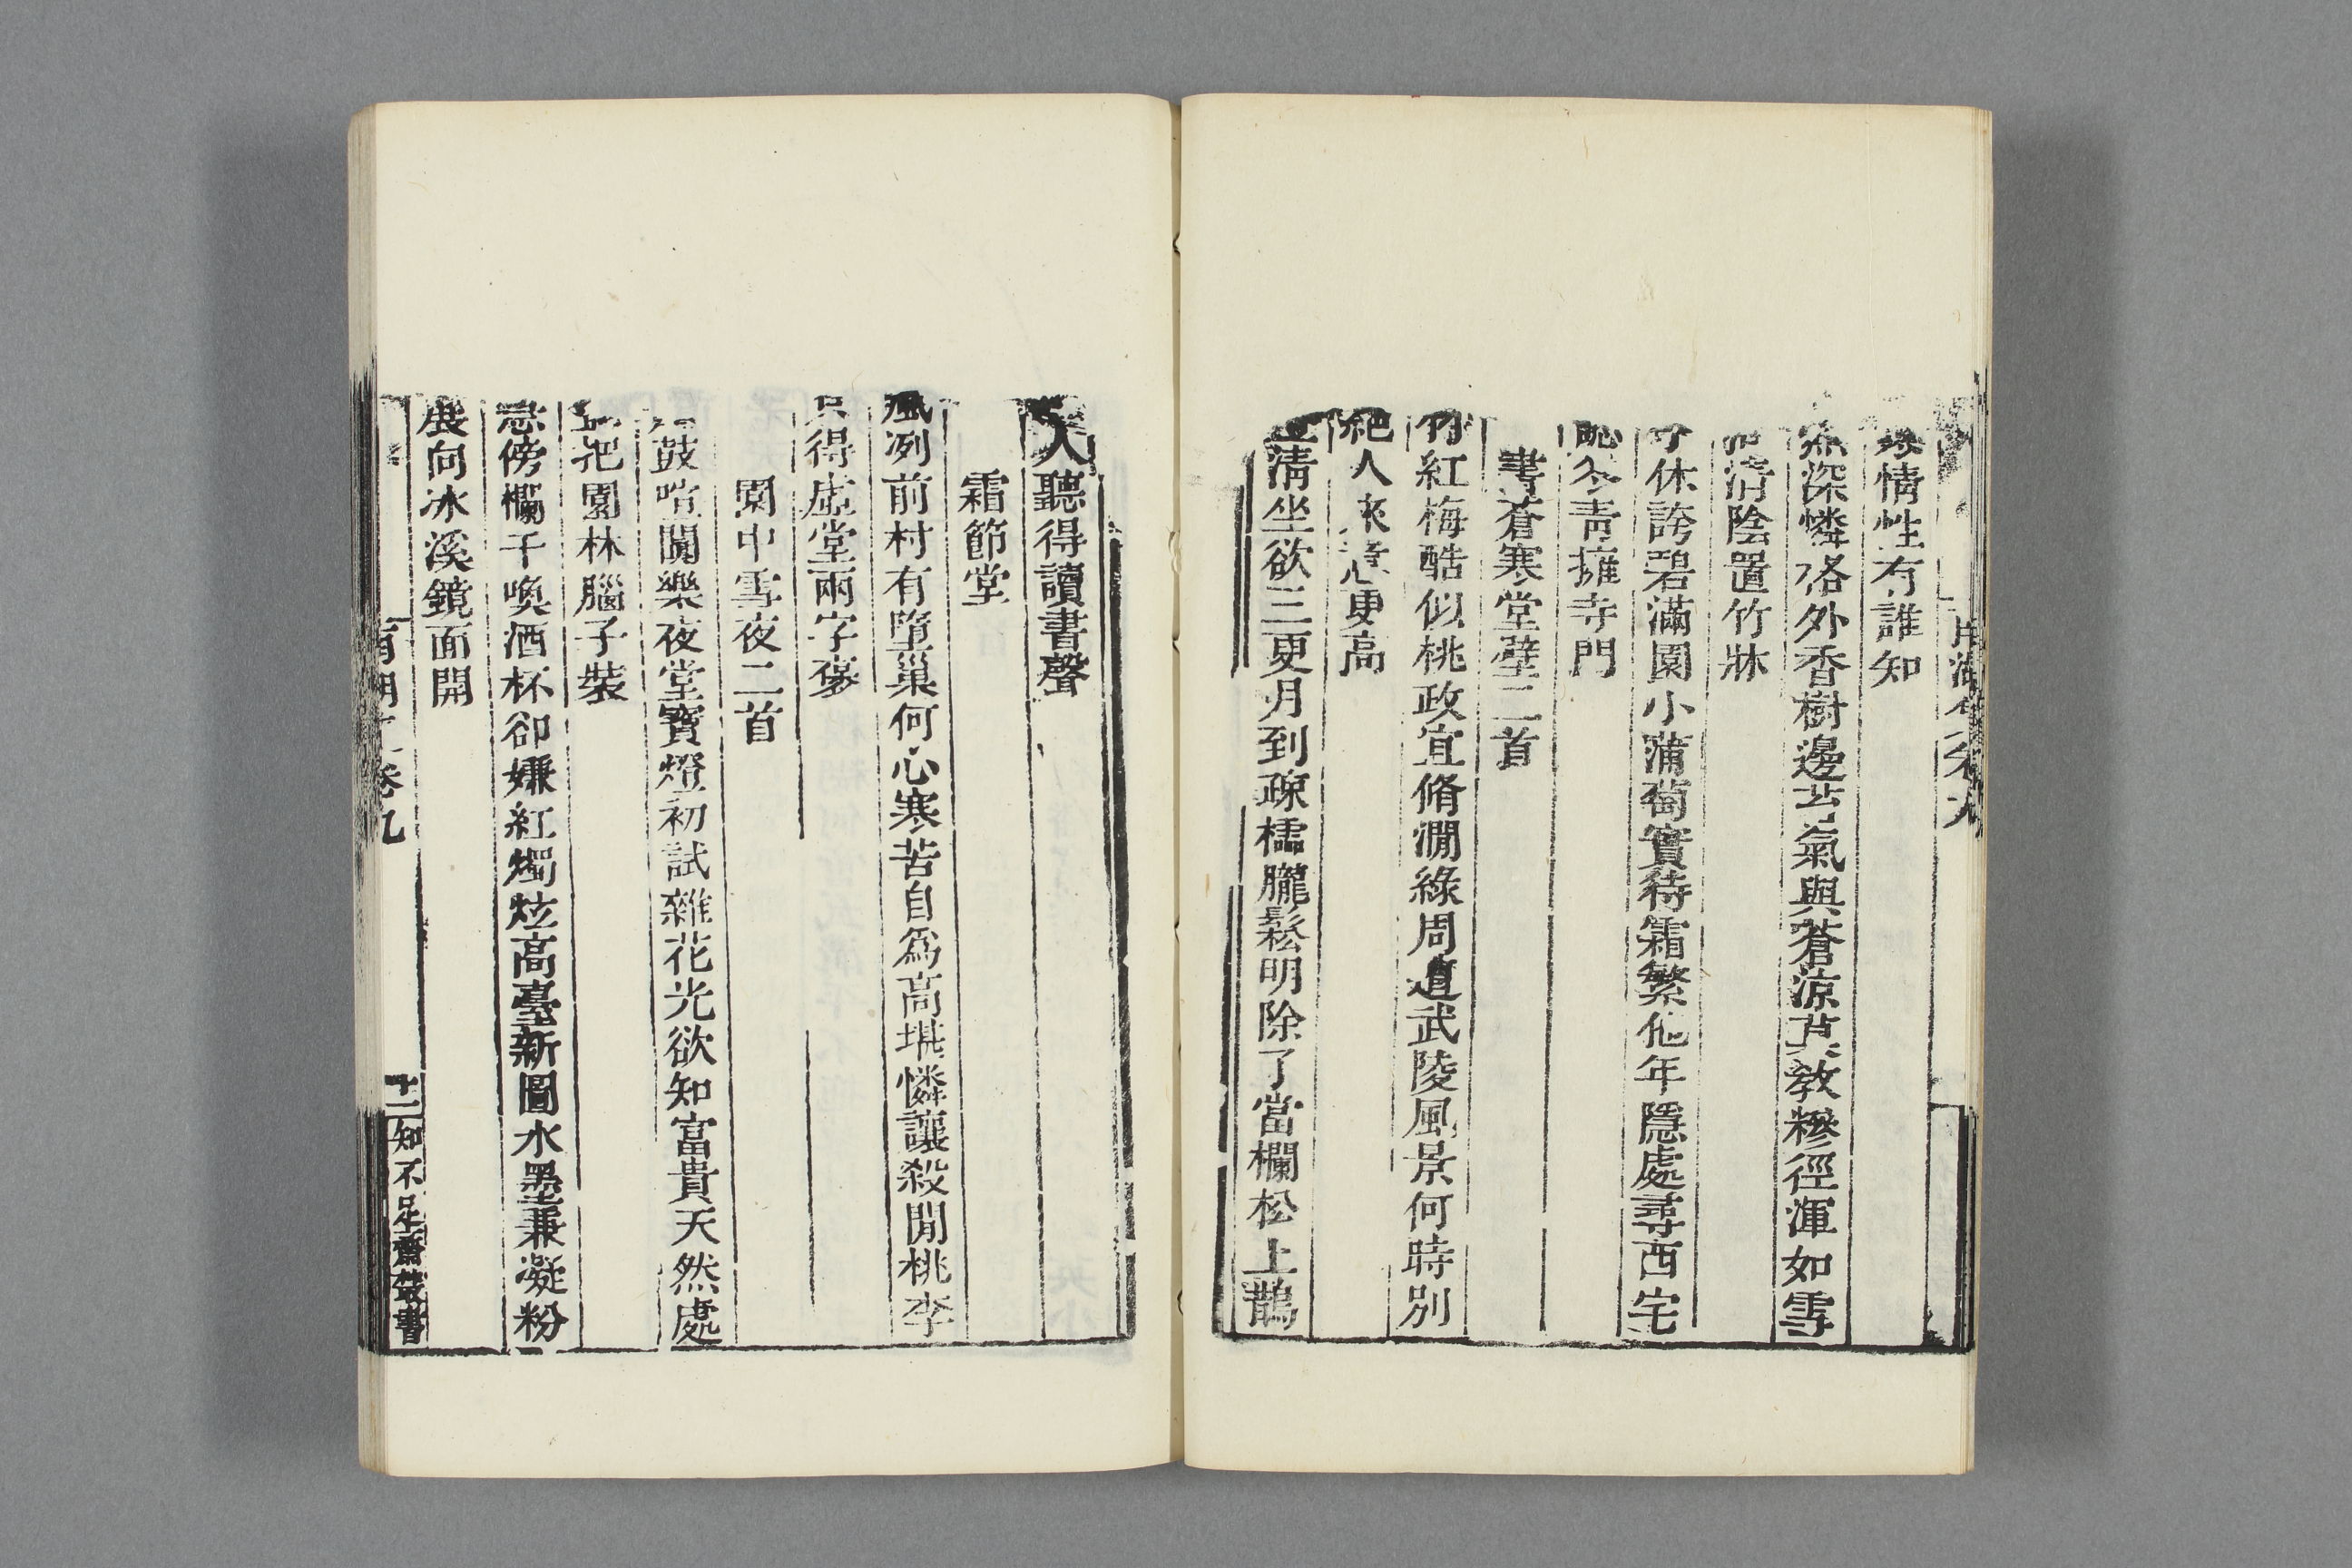 情性有誰知
深憐格外香樹邊芸氣與蒼涼莫教糝徑渾如雪
清陰置竹牀
休誇碧滿園小蒲萄實待霜繁他年隱處尋西宅
恥冬青擁寺門
書蒼寒堂壁二首
竹紅梅酷似桃政宜脩澗綠周遭武陵風景何時別
絕人來意更高
清坐欲三更月到疎櫺朧鬆明除了當欄松上鵲
人聽得讀書聲
霜節堂
風冽前村有墮巢何心寒苦自爲高堪憐讓殺閒桃李
只得虛堂兩字襃
園中雪夜二首
鼓喧闐樂夜堂寶燈初試雜花光欲知富貴天然處
把園林腦子裝
忌傍欄干喚酒杯卻嫌紅燭炫高臺新圖水墨兼凝粉
展向冰溪鏡面開
卷九
十一
知不足齋叢書